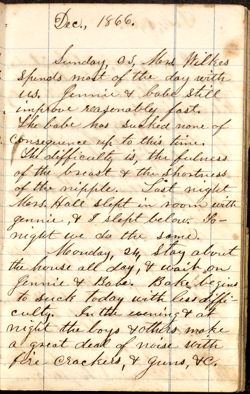 Dec., 1866.
Sunday, 23, Mrs Wilkes
spends most of the day with
us. Jennie & babe still
improve reasonably fast.
The babe has sucked none of
consequence up to this time.
The difficulty is, the fulness
of the breast & the shortness
of the nipple. Last night
Mrs. Hall slept in room with
Jennie, & I slept below. To-
night we do the same.
Monday, 24, Stay about
the house all day, & wait on
Jennie & Babe. Babe begins
to suck today with less diffi-
culty. In the evening & at
night the boys & others make
a great deal of noise with
fire crackers, & guns, &C.